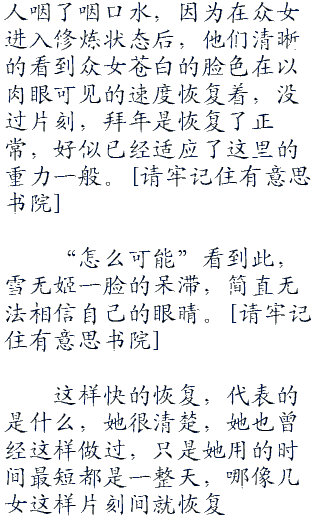 人咽了咽口水，因为在众女
进入修炼状态后，他们清晰
的看到众女苍白的脸色在以
肉眼可见的速度恢复着，没
过片刻，拜年是恢复了正
常，好似已经适应了这里的
重力一般。[请牢记住有意思
书院]
“怎么可能”看到此，
雪无姬一脸的呆滞，简直无
法相信自己的眼睛。[请牢记
住有意思书院]
这样快的恢复，代表的
是什么，她很清楚，她也曾
经这样做过，只是她用的时
间最短都是一整天，哪像儿
女这样片刻间就恢复